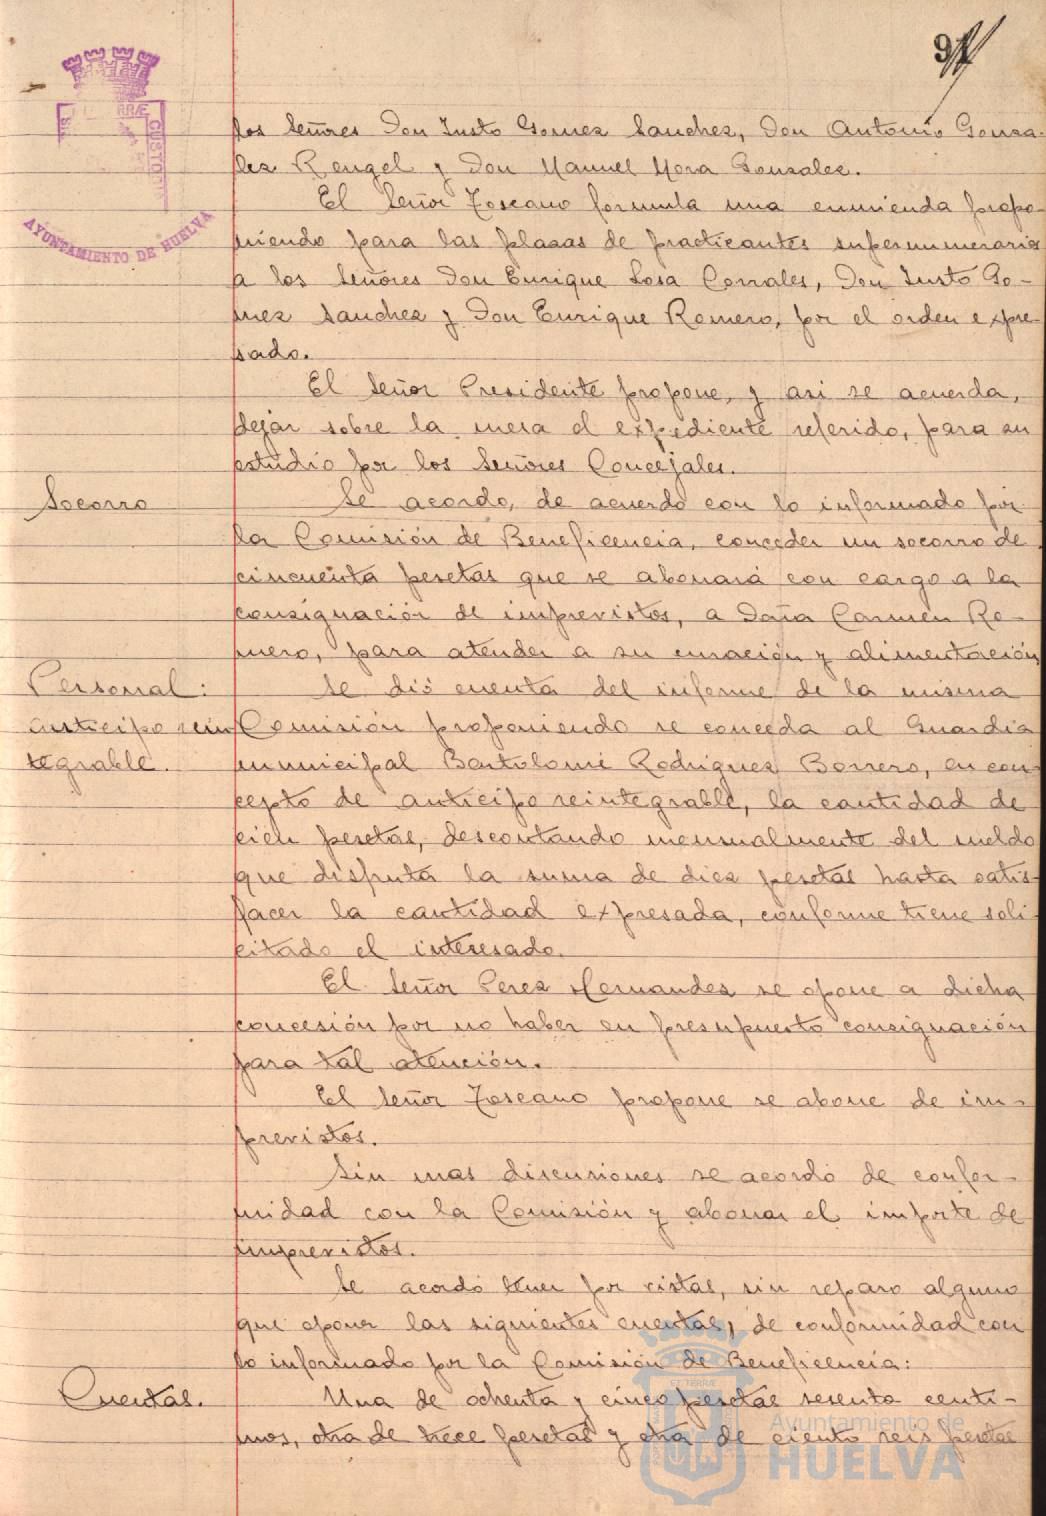 91
los Señores Don Justo Gomez Sanchez, Don Antonio Gonza-
lez Rengel y Don Manuel Mora Gonzalez.
El Señor Toscano formula una enmienda propo-
niendo para las plazas de practicantes supernumerarios
a los Señores Don Enrique Sosa Corrales, Don Justo Go-
mez Sanchez y Don Enrique Romero, por el orden expre-
sado.
El Señor Presidente propone, y asi se acuerda,
dejar sobre la mesa el expediente referido, para su
estudio por los Señores Concejales.
Socorro
Se acordo, de acuerdo con lo informado por
la Comisión de Beneficencia, conceder un socorro de
cincuenta pesetas que se abonará con cargo a la
consignación de imprevistos, a Doña Carmen Ro-
mero, para atender a su curación y alimentación
Personal:
anticipo rein
tegrable.
Se dió cuenta del informe de la misma
Comisión proponiendo se conceda al Guardia
municipal Bartolomé Rodriguez Borrero, en con-
cepto de anticipo reintegrable, la cantidad de
cien pesetas, descontando mensualmente del sueldo
que disfruta la suma de diez pesetas hasta satis-
facer la cantidad expresada, conforme tiene soli-
citado el interesado.
El Señor Perez Hernandez se opone a dicha
concesión por no haber en presupuesto consignación
para tal atención.
El Señor Toscano propone se abone de im-
previstos.
Sin mas discusiones se acordó de confor-
midad con la Comisión y abonar el importe de
imprevistos.
Se acordó tener por vistas, sin reparo alguno
que oponer las siguientes cuentas, de conformidad con
lo informado por la Comisión de Beneficencia:
Cuentas.
Una de ochenta y cinco pesetas sesenta centi-
mos, otra de trece pesetas y otra de ciento seis pesetas
AYUNTAMIENTO DE HUELVA
Ayuntamiento de
HUELVA